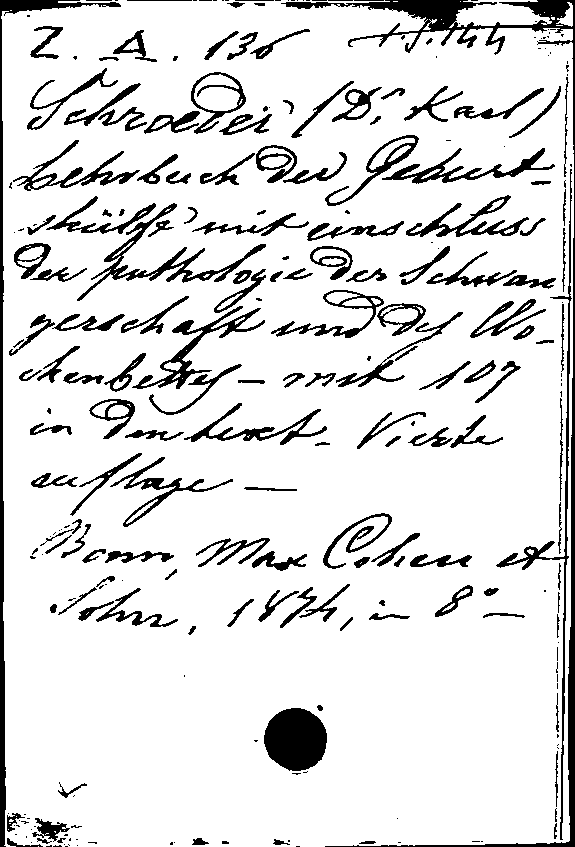 Z. A. 136 15.144
Schroeder (Dr Karl)
Lehrbuch der Geburt-
shülfe mit einschluss
der pathologie der Schwan
gerschaft und des Wo-
chenbettes – mit 107
in den text – Vierte
auflage –
Bonn, Max Cohen et
Sohn, 1874, in 8° –